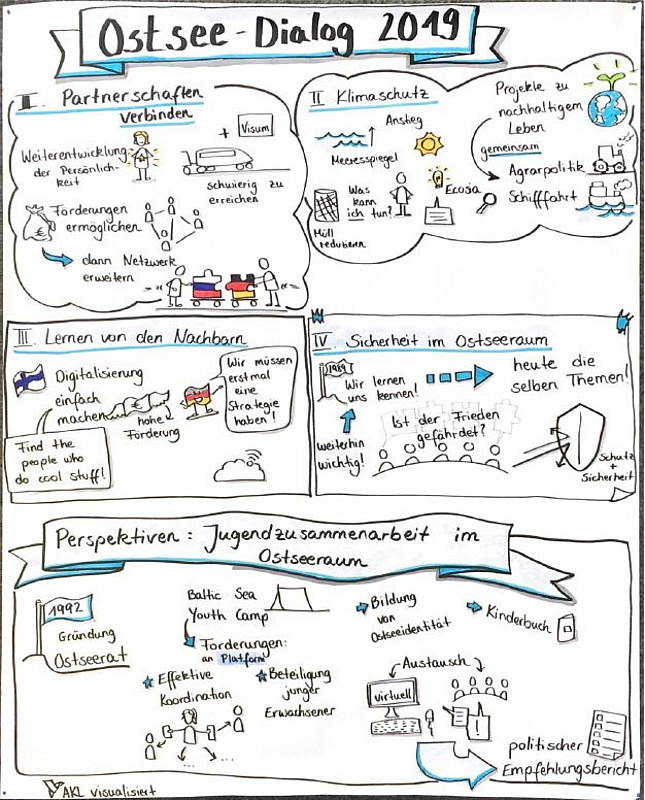 Ostsee-Dialog 2019
I. Partnerschaften
verbinden
Weiterentwicklung
der Persönlich-
keit
+
Visum
schwierig zu
erreichen
Förderungen
ermöglichen
€
dann Netzwerk
erweitern
II Klimaschutz
Anstieg
Meeresspiegel
Müll
reduzieren
Was
kann
ich tun?
Ecosia
Projekte zu
nachhaltigem
Leben
gemeinsam
Agrarpolitik
Schifffahrt
III. Lernen von den Nachbarn
Digitalisierung
einfach
machen
hohe
Förderung
Find the
people who
do cool stuff!
Wir müssen
erstmal
eine
Strategie
haben!
IV. Sicherheit im Ostseeraum
1989
Wir lernen
uns kennen!
heute die
selben Themen!
weiterhin
wichtig!
Ist der Frieden
gefährdet?
Schutz
+
Sicherheit
Perspektiven: Jugendzusammenarbeit im
Ostseeraum
1992
Gründung
Ostseerat
Baltic Sea
Youth Camp
Forderungen:
an Platform
Effektive
Koordination
Beteiligung
junger
Erwachsener
Bildung
von
Ostseeidentität
Kinderbuch
Austausch
virtuell
!
politischer
Empfehlungsbericht
AKL visualisiert